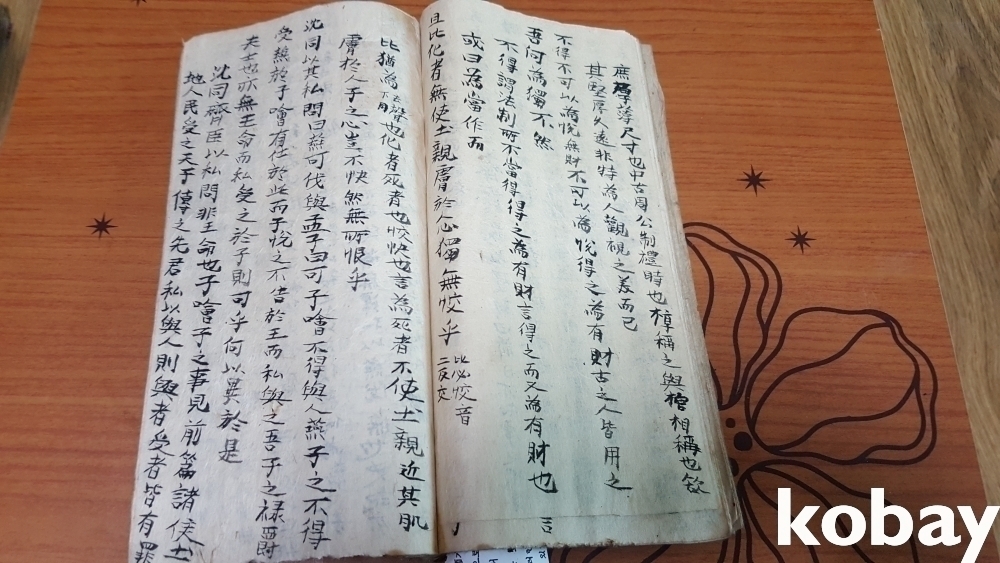 度厚薄尺寸也中古周公制禮時也椁稱之與棺相稱也欲
其堅厚久遠非特為人觀視之美而已
不得不可以為悅無財不可以為悅得之為有財古之人皆用之
吾何為獨不然
不得謂法制所不當得得之為有財言得之而又為有財也
或曰為當作而
且比化者無使土親膚於人心獨無恔乎
比必
二反
恔音
交
比猶為也化者死者也恔快也言為死者不使土親近其肌
膚於人子之心豈不快然無所恨乎
沈同以其私問曰燕可伐與孟子曰可子噲不得與人燕子之不得
受燕於子噲有仕於此而子悅之不告於王而私與之吾子之祿爵
夫士也亦無王命而私受之於子則可乎何以異於是
沈同齊臣以私問非王命也子噲子之事見前篇諸侯土
地人民受之天子傳之先君私以與人則與者受者皆有罪
言
kobay